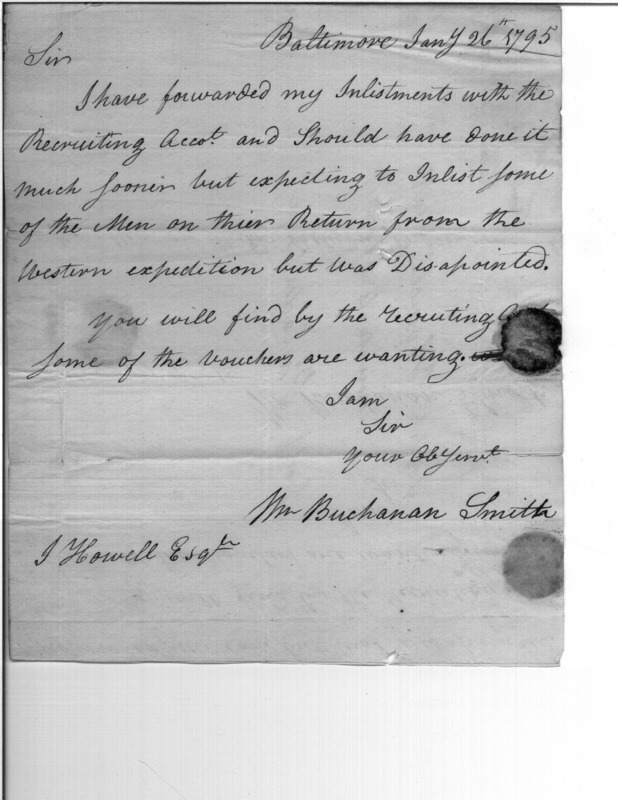 Baltimore Jany 26th 1795
Sir
I have forwarded my Inlistments with the
Recruiting Accot. and Should have done it
much sooner but expecting to Inlist some
of the Men on thier Return from the
Western expedition but was Disapointed.
You will find by the recruting
some of the vouchers are wanting.
I am
Sir
Your Ob Servt.
Wm Buchanan Smith
J Howell Esqr